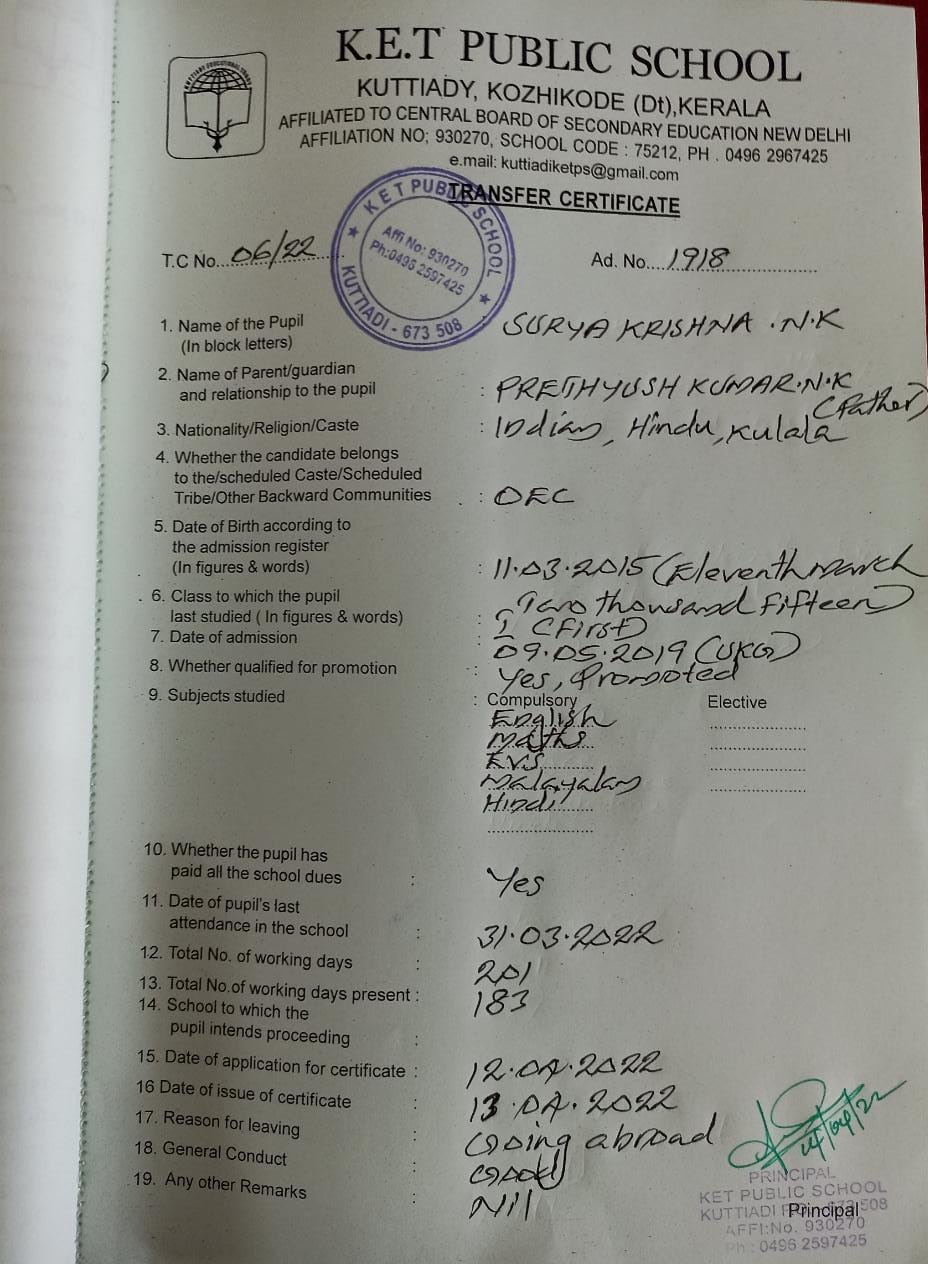 K.E.T PUBLIC SCHOOL
KUTTIADY, KOZHIKODE (Dt),KERALA
AFFILIATED TO CENTRAL BOARD OF SECONDARY EDUCATION NEW DELHI
AFFILIATION NO; 930270, SCHOOL CODE : 75212, PH . 0496 2967425
e.mail: kuttiadiketps@gmail.com
TRANSFER CERTIFICATE
KET PUBLIC SCHOOL
Affi No: 930270
Ph:0496 2597425
KUTTIADI - 673 508
T.C No. 06/22 Ad. No. 1918
1. Name of the Pupil
(In block letters) SURYA KRISHNA .N.K
2. Name of Parent/guardian
and relationship to the pupil : PRETHYUSH KUMAR.N.K
(Father)
3. Nationality/Religion/Caste : Indian, Hindu, Kulala
4. Whether the candidate belongs
to the/scheduled Caste/Scheduled
Tribe/Other Backward Communities : OEC
5. Date of Birth according to
the admission register
(In figures & words) : 11.03.2015 (Eleventh march
Two thousand Fifteen)
6. Class to which the pupil
last studied ( In figures & words) : I (First)
7. Date of admission : 09.05.2019 (UKG)
8. Whether qualified for promotion : Yes, Promoted
9. Subjects studied : Compulsory Elective
English
Maths
EVS
Malayalam
Hindi
10. Whether the pupil has
paid all the school dues : Yes
11. Date of pupil's last
attendance in the school : 31.03.2022
12. Total No. of working days : 201
13. Total No.of working days present : 183
14. School to which the
pupil intends proceeding :
15. Date of application for certificate : 12.04.2022
16 Date of issue of certificate : 13.04.2022
17. Reason for leaving : Going abroad
18. General Conduct : Good
19. Any other Remarks : Nil
PRINCIPAL
KET PUBLIC SCHOOL
KUTTIADI 508
Principal
AFFI:No. 930270
Ph : 0496 2597425